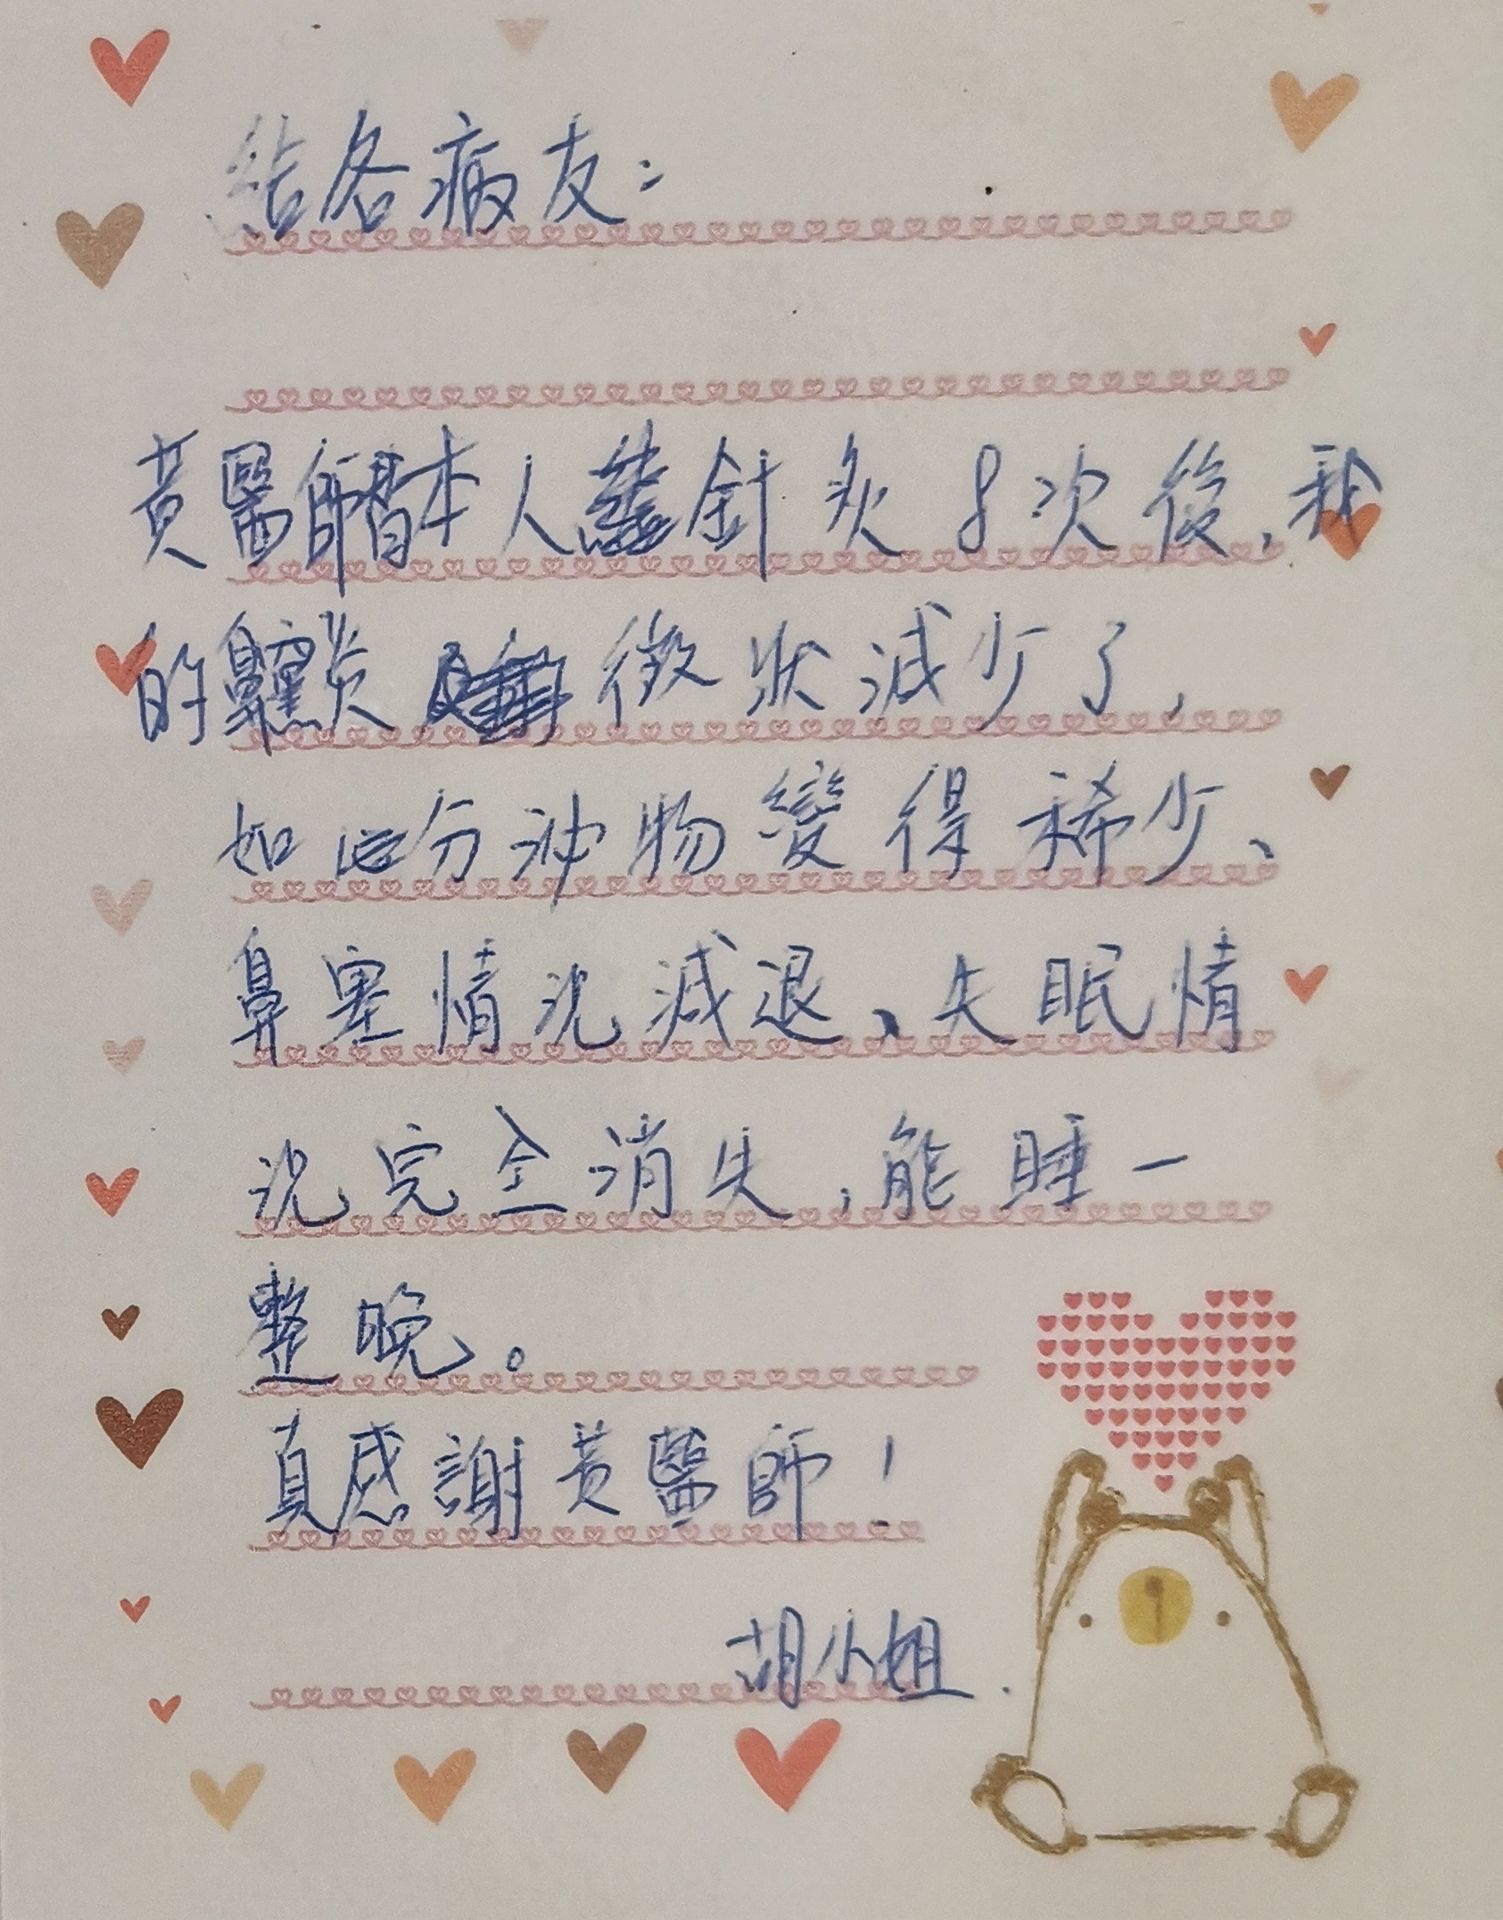 給各病友：
黃醫師替本人針灸8次後，我
的鼻竇炎徵狀減少了，
如分泌物變得稀少、
鼻塞情況減退、失眠情
況完全消失，能睡一
整晚。
真感謝黃醫師！
胡小姐.